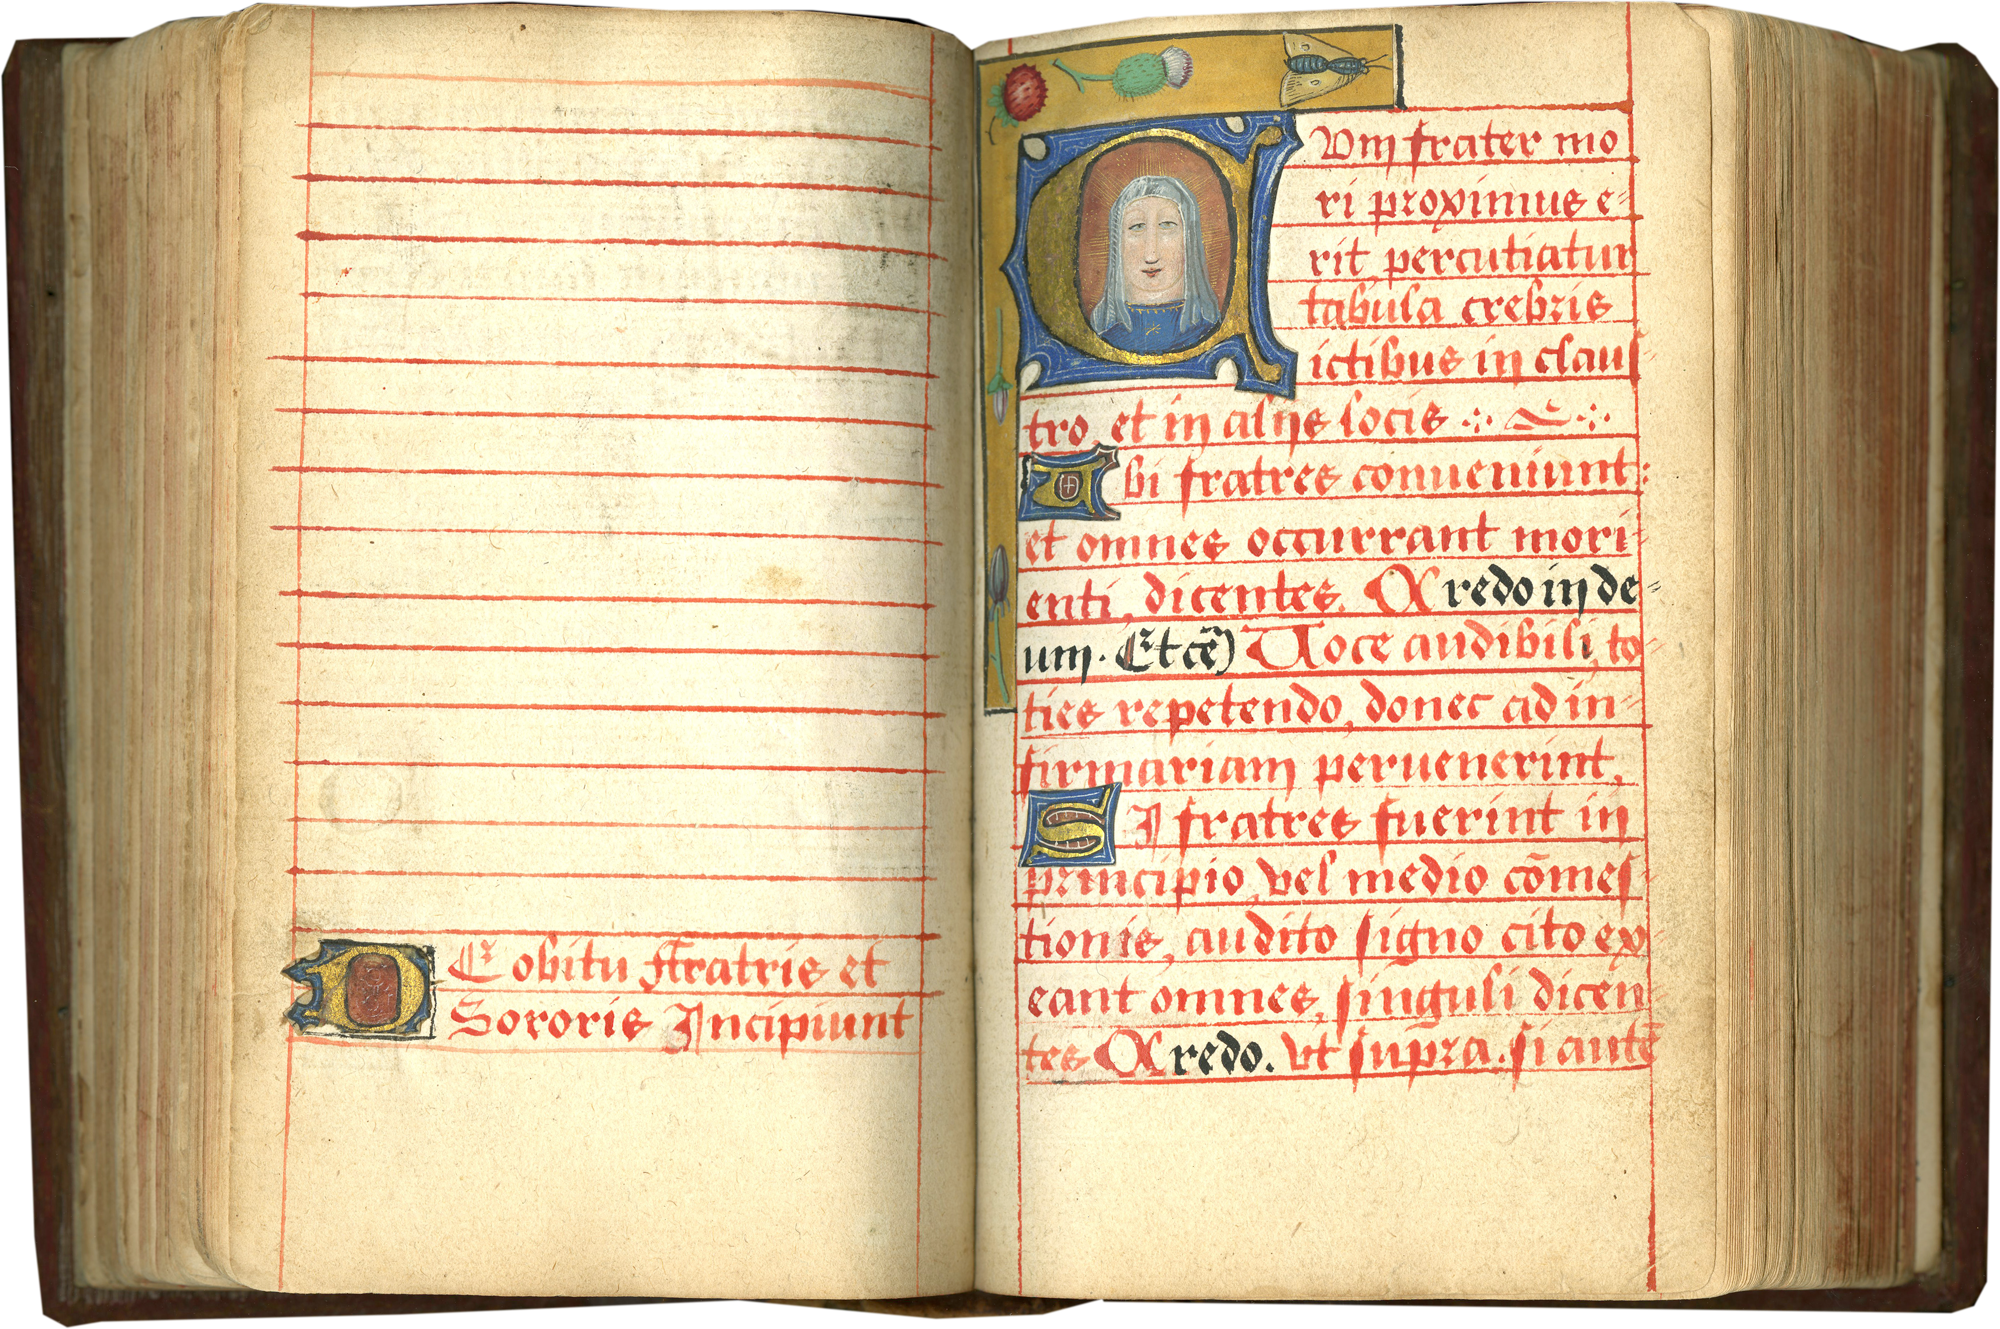 DE obitu ffratris et
Sororis Incipiunt
CVm frater mo
ri proximus e-
rit percutiatur
tabula crebris
ictibus in clauſ-
tro, et in alijs locis
Vbi fratres conueniunt:
et omnes occurrant mori-
enti, dicentes. Credo in de-
um. Et cẽ) Uoce audibili, to-
ties repetendo, donec ad in-
firmariam peruenerint,
SI fratres fuerint in
principio, vel medio cōmeſ-
tionis, audito ſigno cito ex-
eant omnes, ſinguli dicen-
tes Credo. vt ſupra. ſi autē